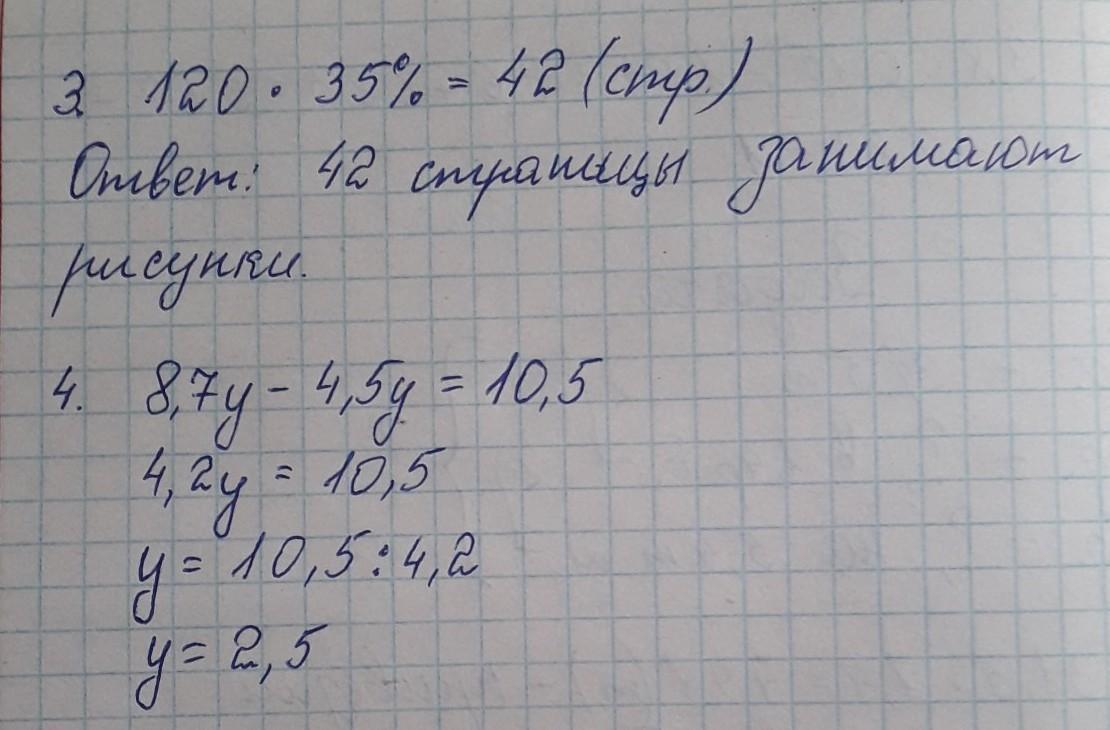 3. 120 · 35% = 42 (стр.)
Ответ: 42 страницы занимают
рисунки.
4. 8,7y - 4,5y = 10,5
4,2y = 10,5
y = 10,5 : 4,2
y = 2,5